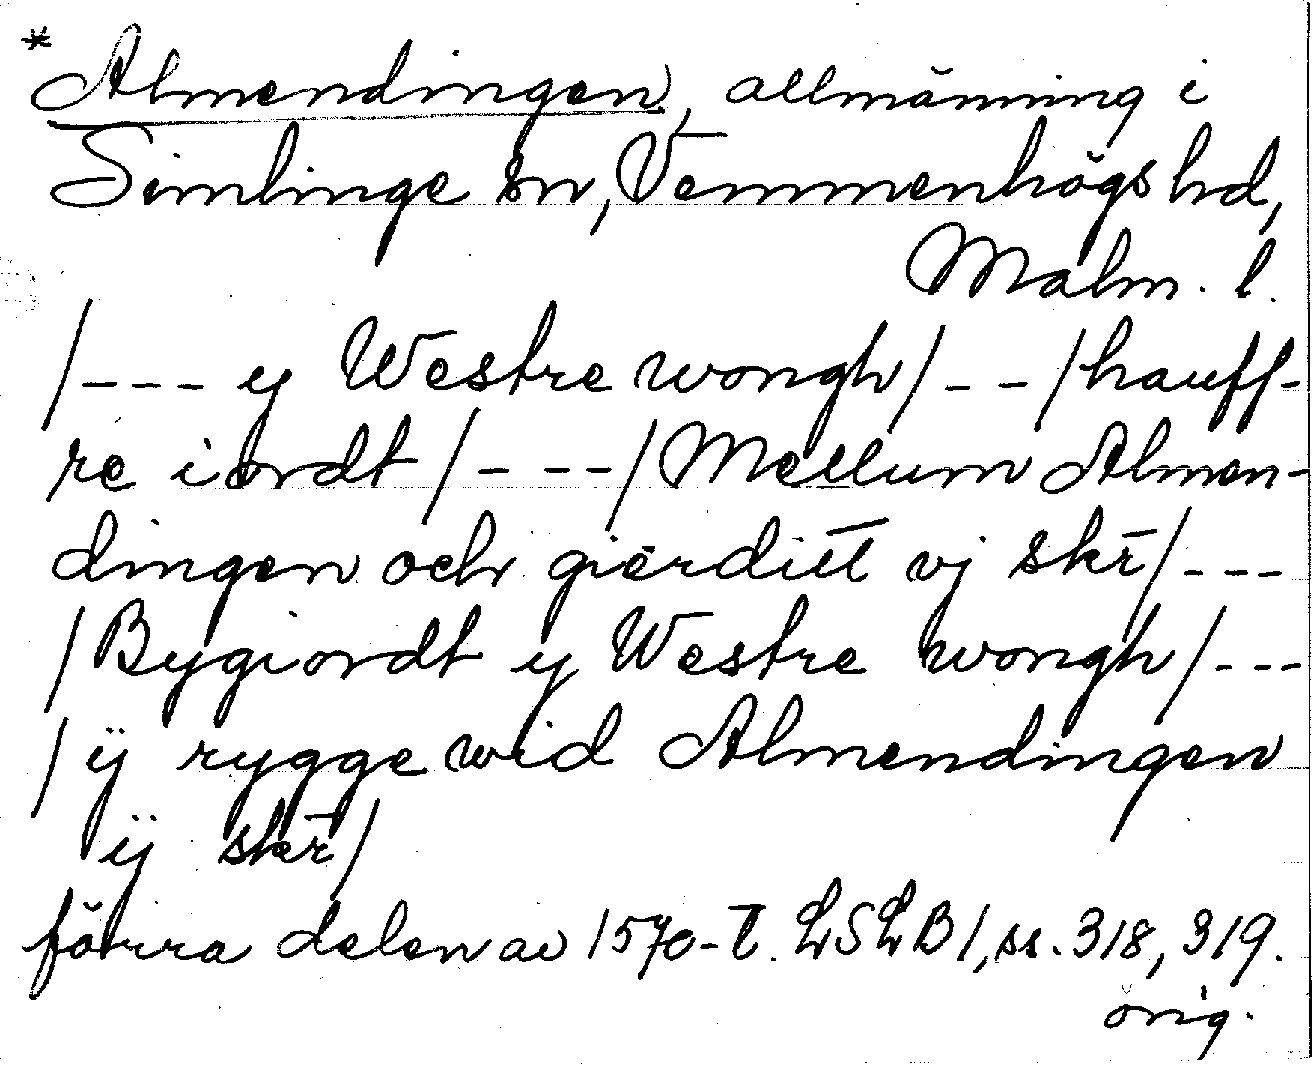 * Almendingen, allmänning i
Simlinge sn, Vemmenhögs hd,
Malm. l.
/--- y Westre wongh/--/hauff-
re iordt/---/Mellum Almen-
dingen och gierditt vj skr̄/---
/Bygiordt y Westre wongh/---
/ÿ rygge wid Almendingen
ÿ skr̄/
förra delen av 1570-t. LSLB 1, ss. 318, 319.
orig.